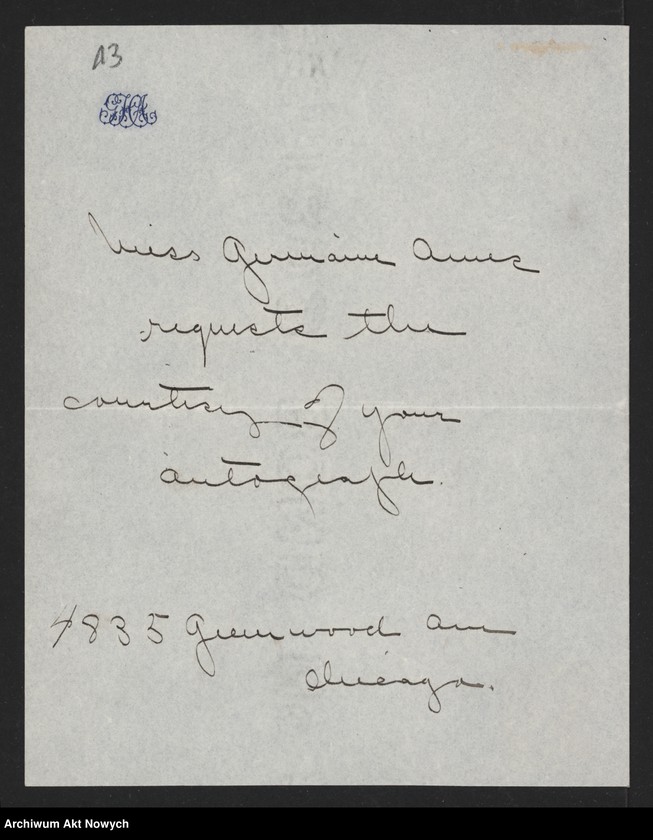 13
GHA
Miss Germaine Ames
requests the
courtesy of your
autograph.
4835 Greenwood Ave
Chicago.
Archiwum Akt Nowych